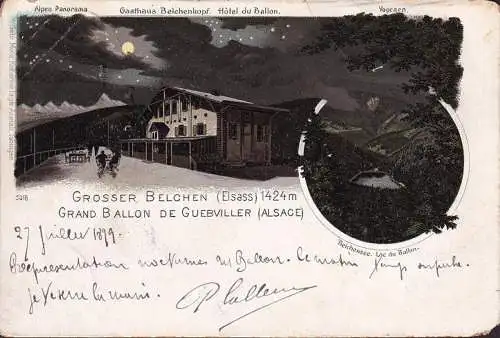 Alpen Panorama
Gasthaus Belchenkopf. Hôtel du Ballon.
Vogesen
5218
GROSSER BELCHEN (Elsass) 1424 m
GRAND BALLON DE GUEBVILLER (ALSACE)
Belchensee. Lac du Ballon.
27 Juillet 1899.
Représentation nocturnes au Ballon. Ce matin temps superbe.
Je la